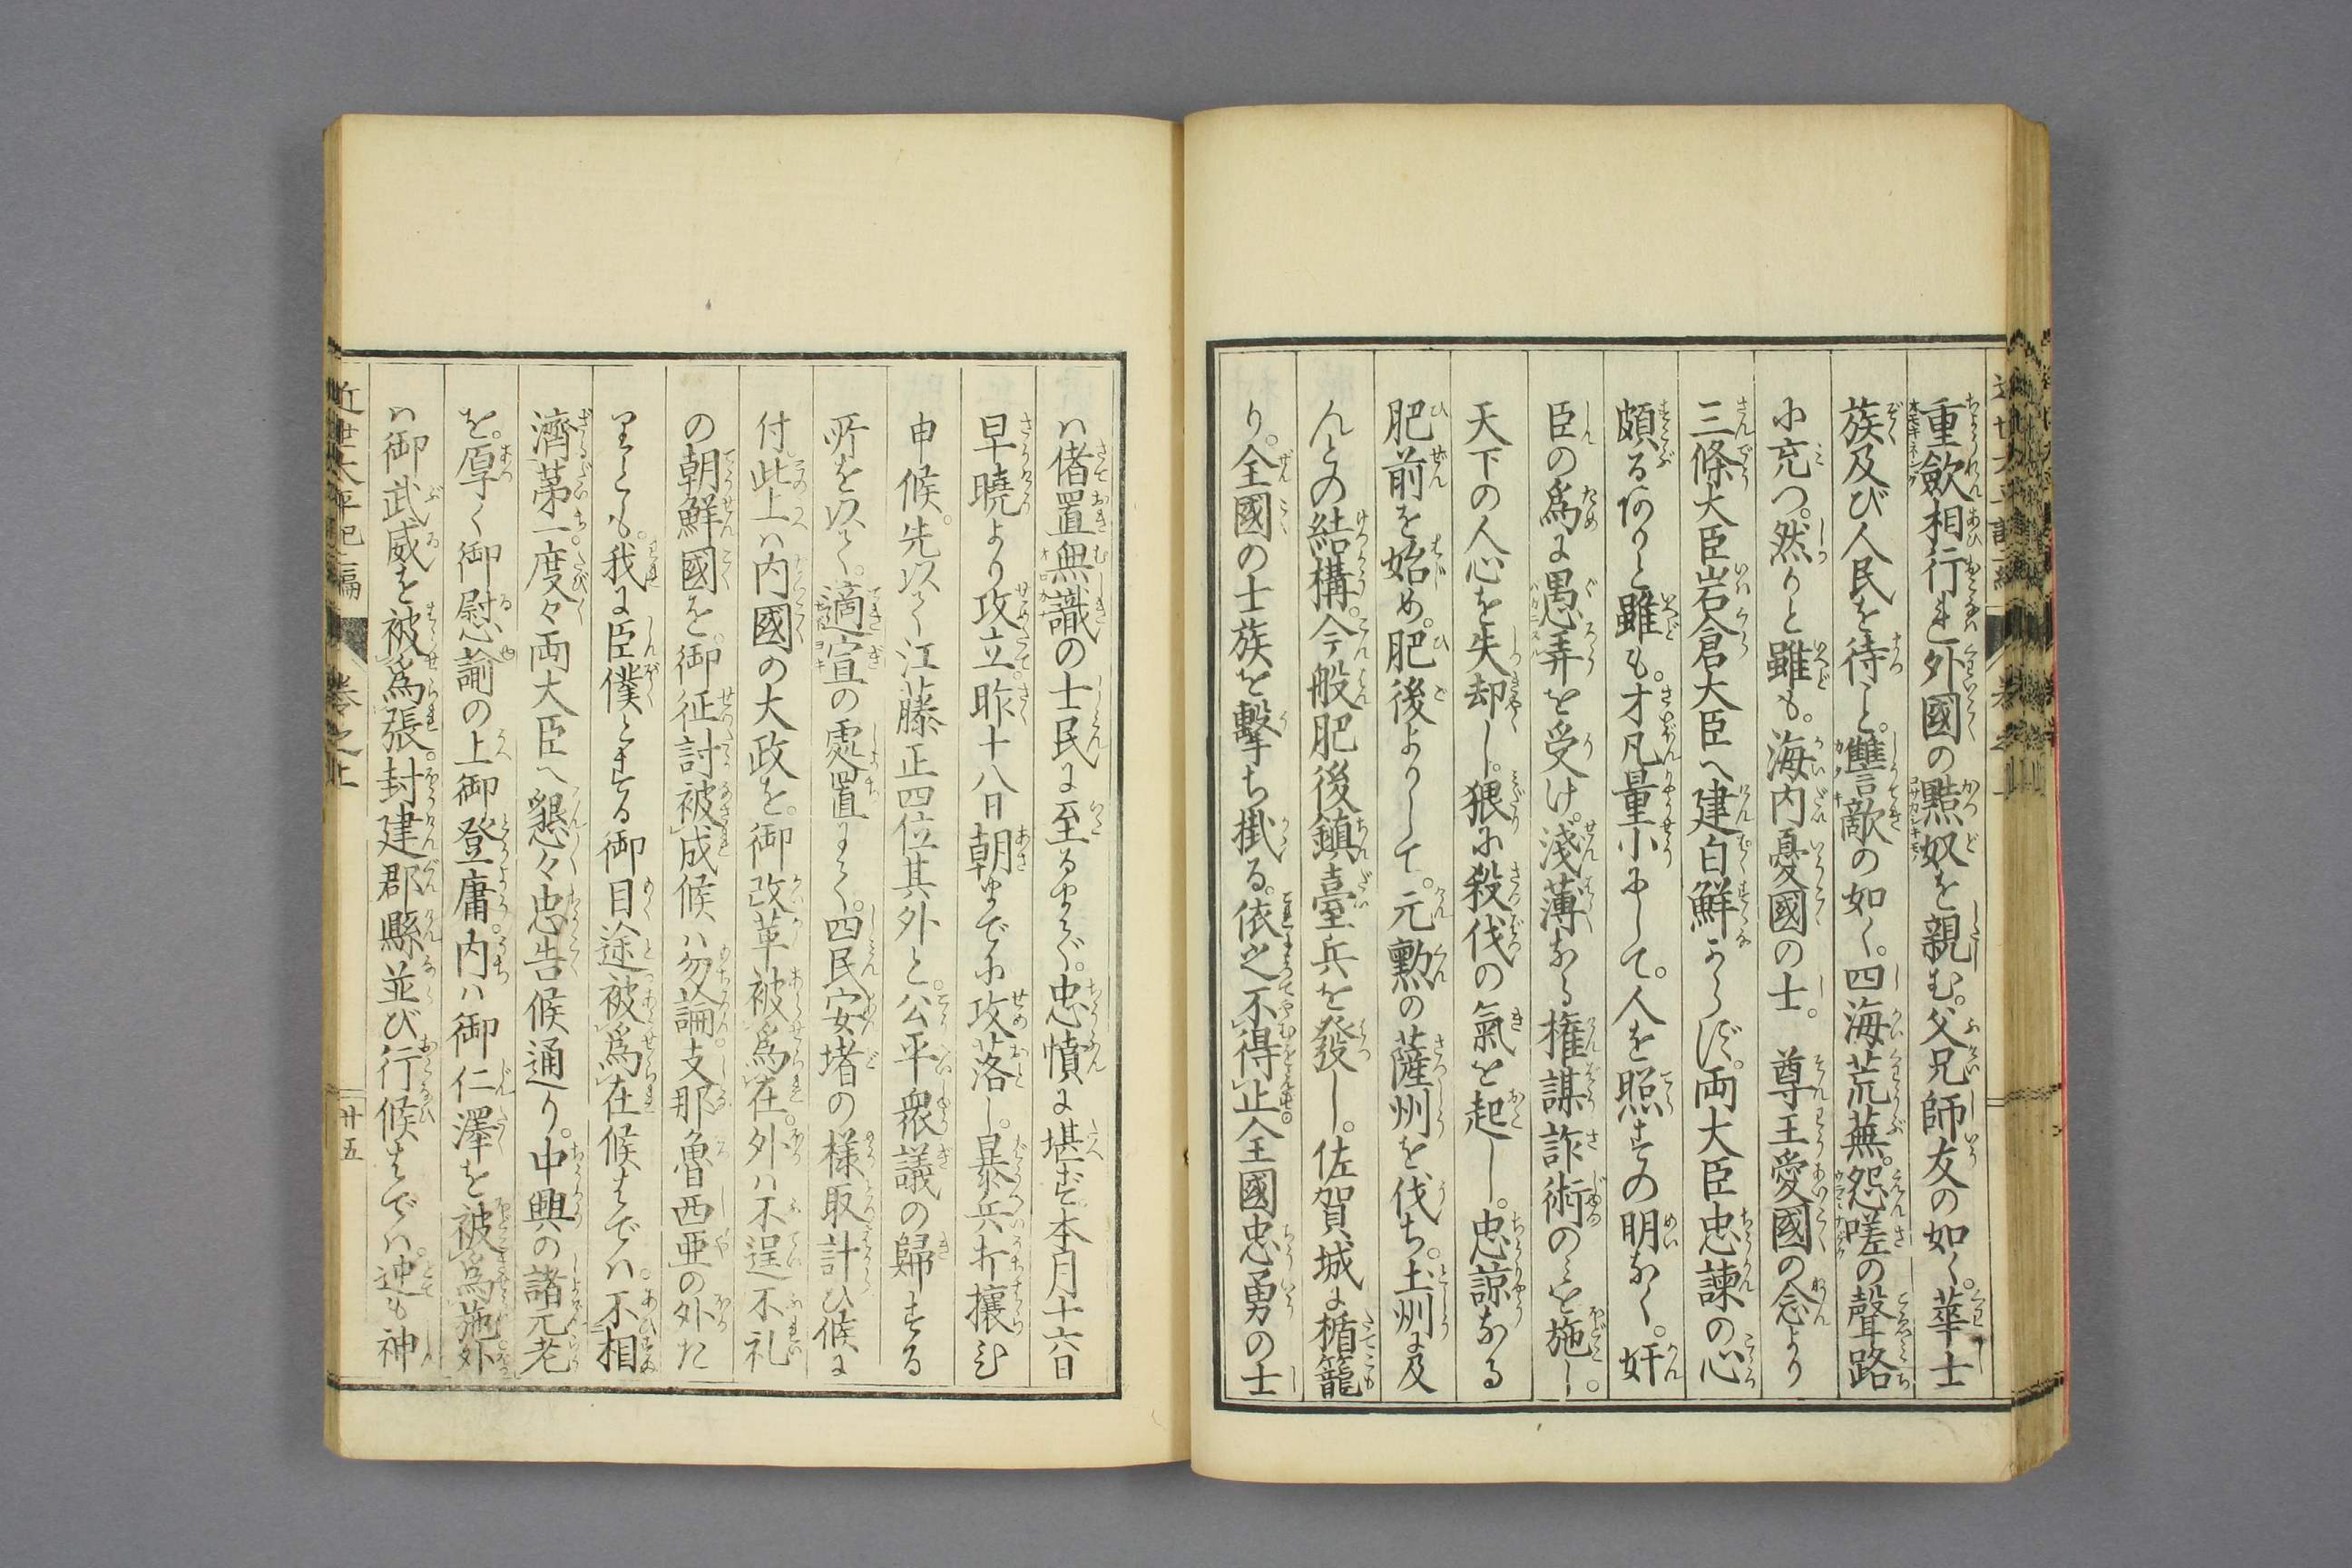 重歛相行れ外國の黠奴を親む。父兄師友の如く。華士
族及び人民を待こと。讐敵の如く。四海荒蕪。怨嗟の聲路
小充つ。然りと雖も。海内憂國の士。尊王愛國の念より
三條大臣岩倉大臣へ建白鮮からず。両大臣忠諫の心
頗る有りと雖も。才凡量小にして。人を照すの明なく。奸
臣の爲に愚弄を受け。淺薄なる権謀詐術のミを施し。
天下の人心を失却し。猥に殺伐の氣を起し。忠諒ある
肥前を始め。肥後よりして。元勲の薩州を伐ち。土州に及
んとの結構。今般肥後鎮臺兵を發し。佐賀城に楯籠
り。全國の士族を擊ち掛る。依之不得止全國忠勇の士
ハ偖置無識の士民に至るまで。忠憤に堪ず本月十六日
早曉より攻立。昨十八日朝までに攻落し。暴兵打攘ひ
申候。先以て江藤正四位其外と。公平衆議の歸する
所を以て。適宜の處置にて。四民安堵の様取計ひ候に
付此上ハ内國の大政を。御改革被爲在。外ハ不逞不礼
の朝鮮國を。御征討被成候ハ勿論。支那魯西亜の外た
りとも。我に臣僕とする御目途被爲在候までハ。不相
濟苐一。度々両大臣へ懇々忠告候通り。中興の諸元老
を。厚く御慰諭の上御登庸。内ハ御仁澤を被爲施外
ハ御武威を被爲張。封建郡縣並び行候までハ。迚も神
近世太平記二編
巻之上
廿五